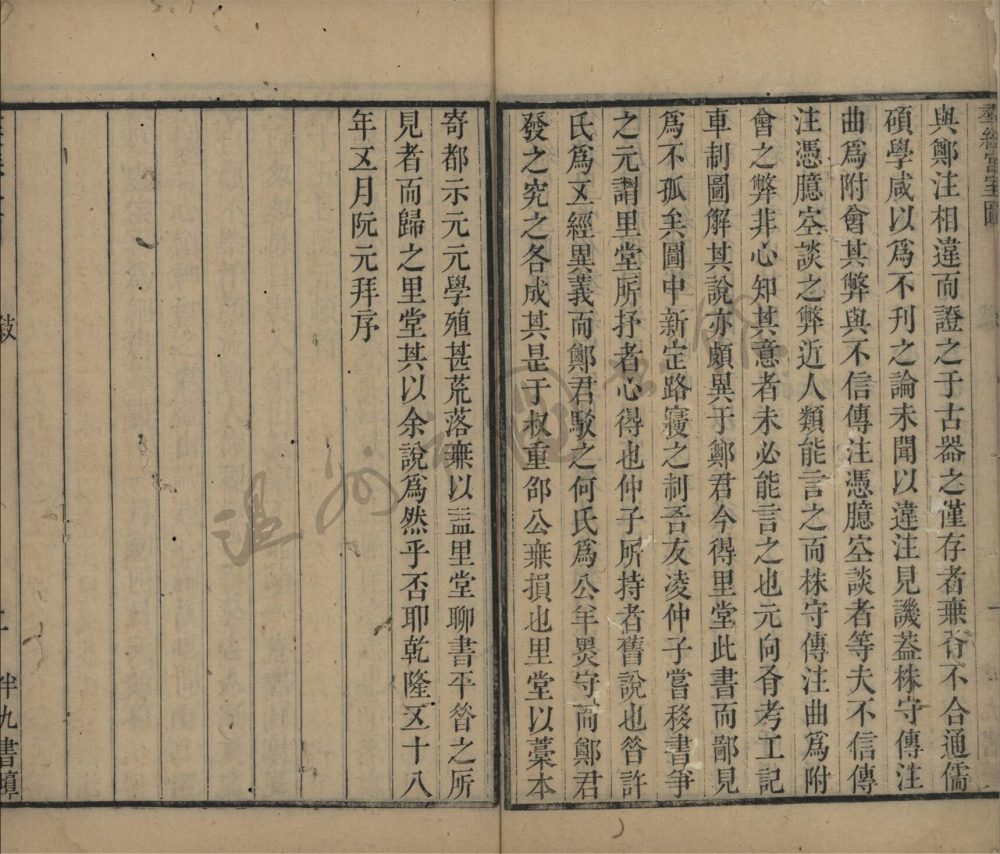 羣經宮室圖
與鄭注相違而證之于古器之僅存者無有不合通儒
碩學咸以爲不刊之論未聞以違注見譏葢株守傳注
曲爲附會其弊與不信傳注憑臆空談者等夫不信傳
注憑臆空談之弊近人類能言之而株守傳注曲爲附
會之弊非心知其意者未必能言之也元向有考工記
車制圖解其說亦頗異于鄭君今得里堂此書而鄙見
爲不孤矣圖中新定路寢之制吾友凌仲子嘗移書爭
之元謂里堂所抒者心得也仲子所持者舊說也昝許
氏爲五經異義而鄭君駮之何氏爲公羊墨守而鄭君
發之究之各成其是于叔重邵公無損也里堂以藁本
寄都示元元學殖甚荒落無以益里堂聊書平昝之所
見者而歸之里堂其以余說爲然乎否耶乾隆五十八
年五月阮元拜序
敍
二
半九書塾
溫州
圖